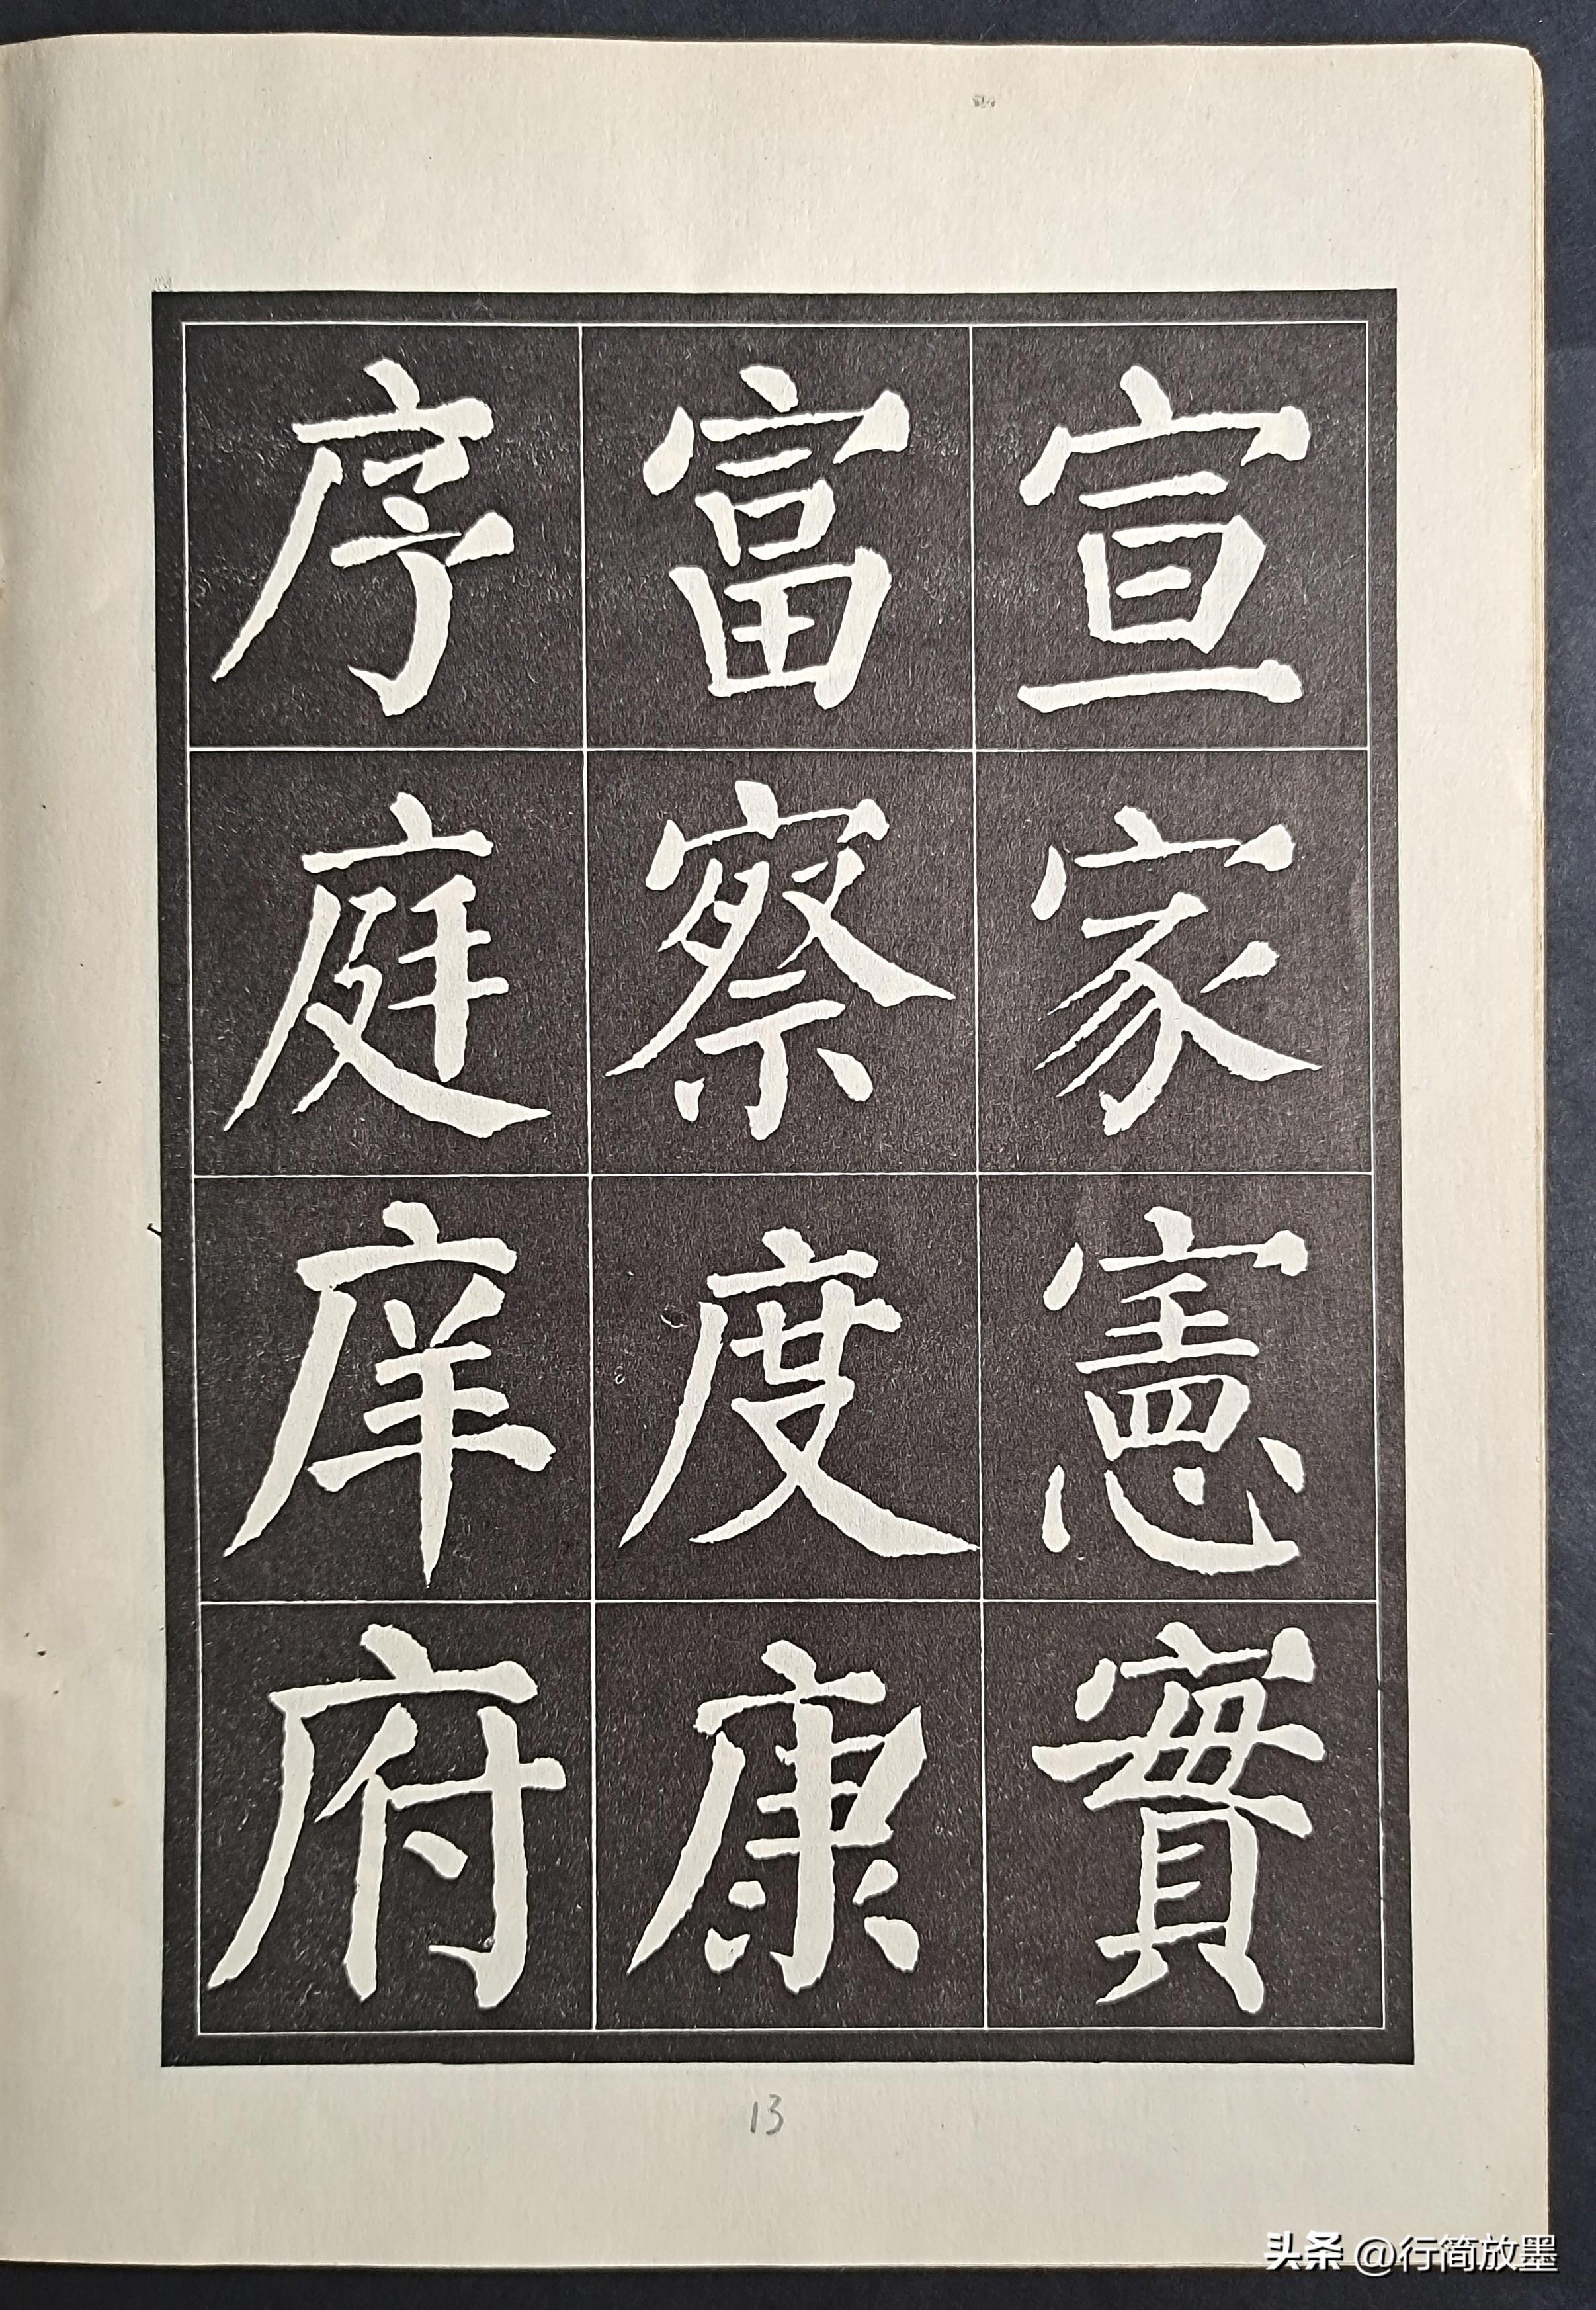 宣家憲實
富察度康
序庭庠府
13
头条 @行简放墨